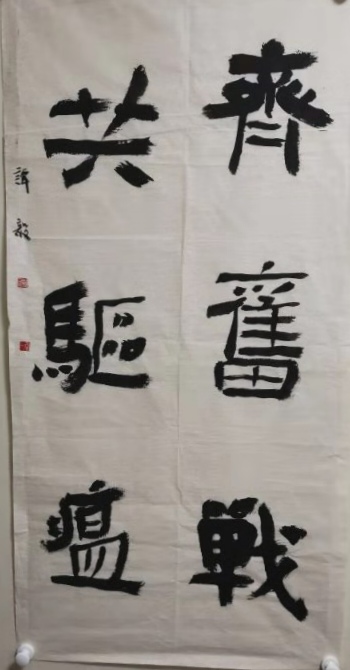 齊奮戰
共驅瘟
許毅